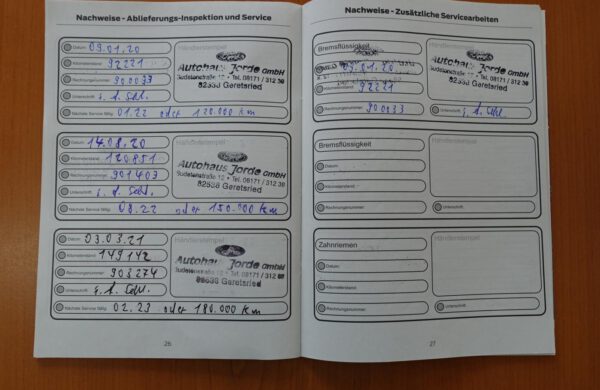 Nachweise - Ablieferungs-Inspektion und Service
Datum: 09.01.20
Kilometerstand: 92221
Rechnungsnummer: 900033
Unterschrift: i. A. Schl.
Nächste Service fällig: 01.22 oder 120.000 km
Händlerstempel
Ford
Autohaus Jorde GmbH
Sudetenstraße 12 • Tel. 08171 / 312 38
82538 Geretsried
Datum: 14.08.20
Kilometerstand: 120851
Rechnungsnummer: 901403
Unterschrift: i. A. Schl.
Nächste Service fällig: 08.22 oder 150.000 km
Händlerstempel
Ford
Autohaus Jorde GmbH
Sudetenstraße 12 • Tel. 08171 / 312 38
82538 Geretsried
Datum: 03.03.21
Kilometerstand: 149142
Rechnungsnummer: 903274
Unterschrift: i. A. Schl.
Nächste Service fällig: 02.23 oder 180.000 km
Händlerstempel
Autohaus Jorde GmbH
Sudetenstraße 12 • Tel. 08171 / 312 38
82538 Geretsried
26
Nachweise - Zusätzliche Servicearbeiten
Bremsflüssigkeit
09.01.20
Kilometerstand: 92221
Rechnungsnummer: 900033
Händlerstempel
Ford
Autohaus Jorde GmbH
Sudetenstraße 12 • Tel. 08171 / 312 38
82538 Geretsried
Unterschrift: i. A. Schl.
Bremsflüssigkeit
Datum:
Kilometerstand:
Rechnungsnummer:
Händlerstempel
Unterschrift:
Zahnriemen
Datum:
Kilometerstand:
Rechnungsnummer:
Händlerstempel
Unterschrift:
27